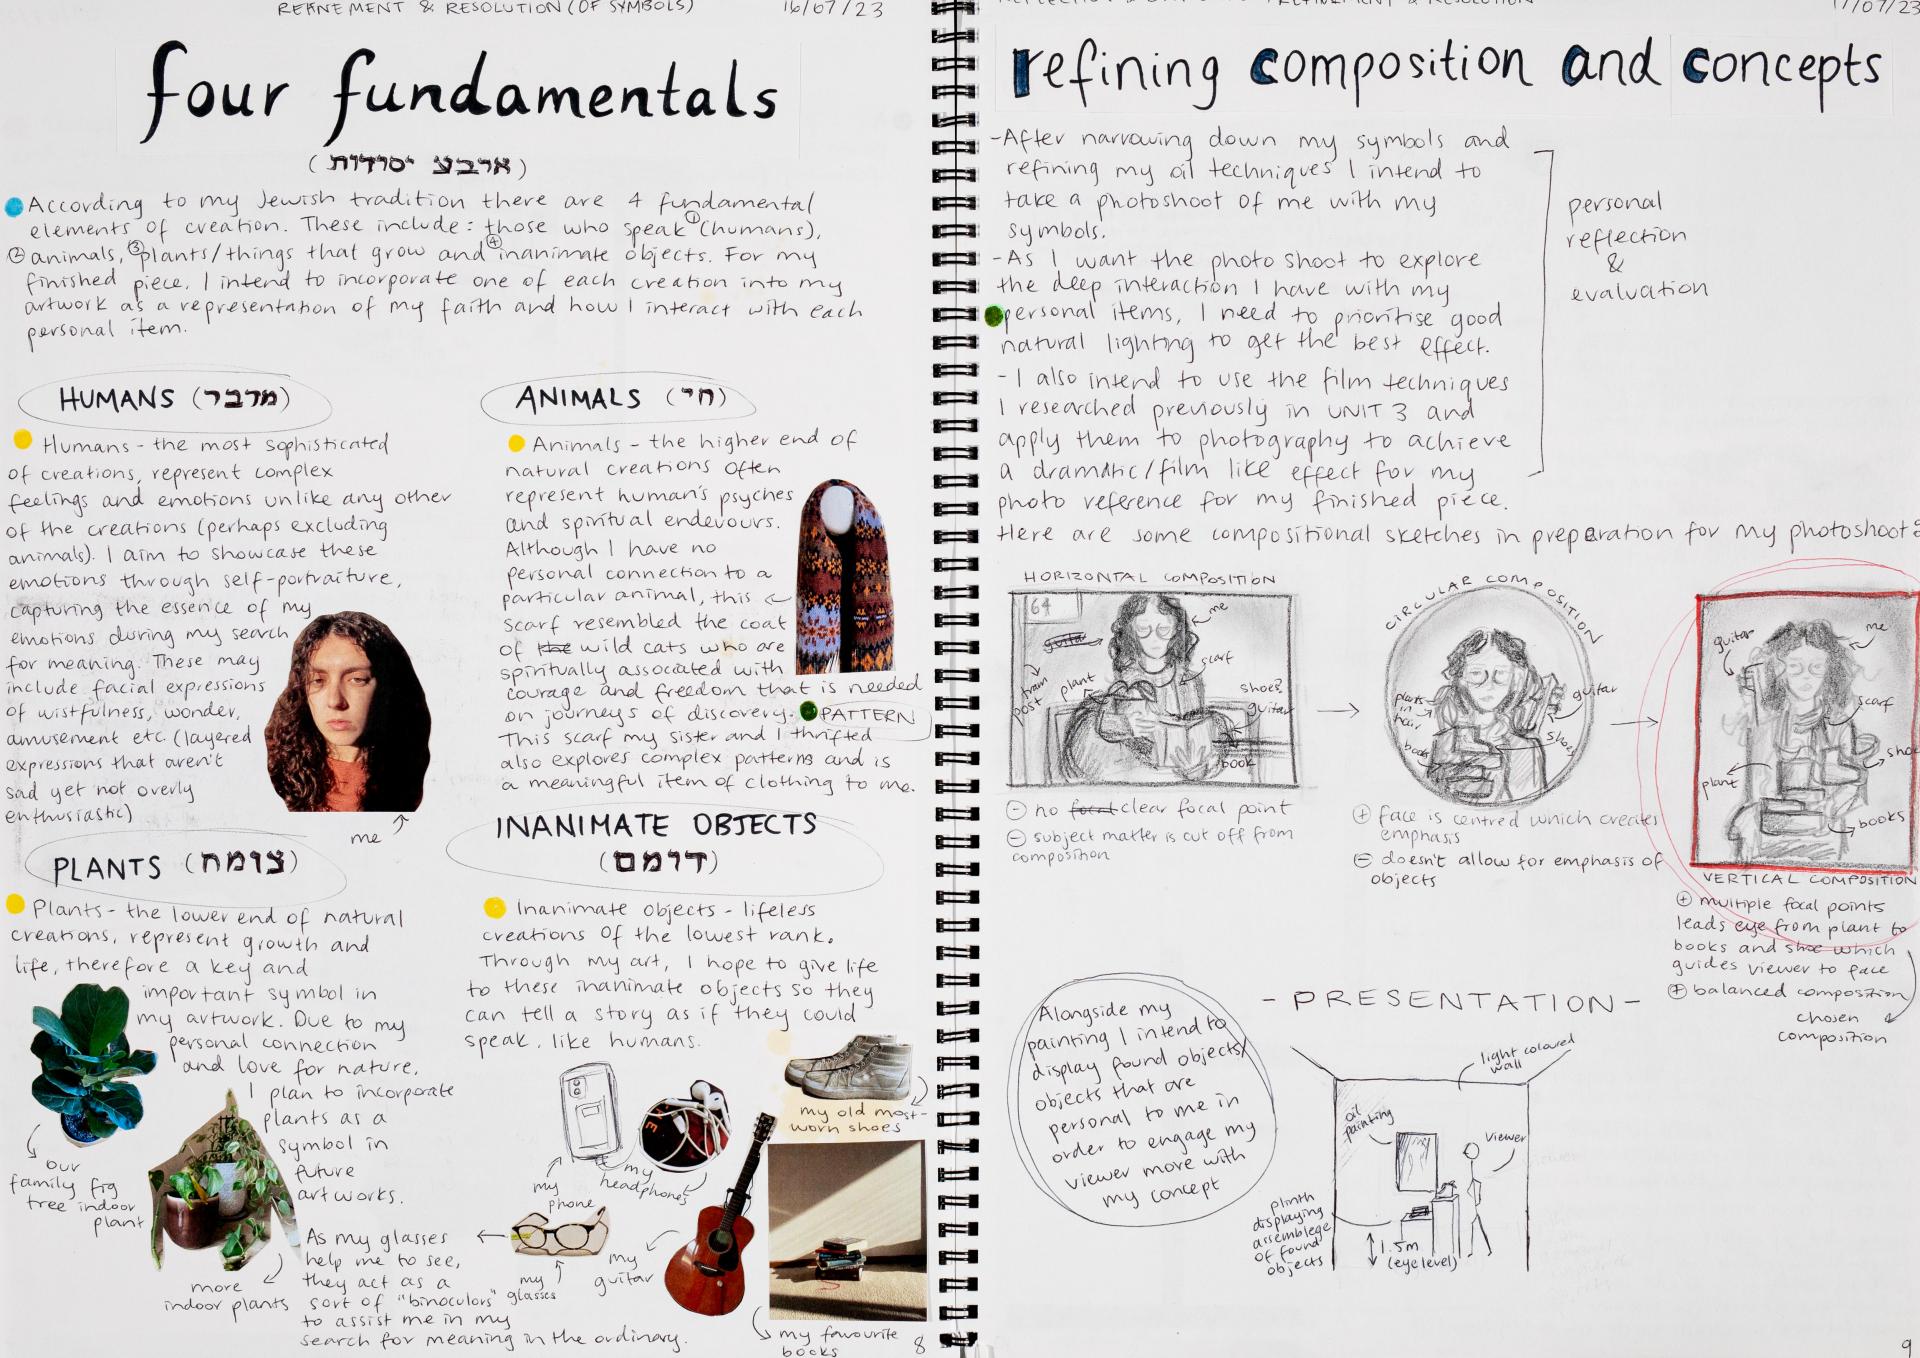 REFINEMENT & RESOLUTION (OF SYMBOLS)
16/07/23
four fundamentals
(ארבע יסודות)
According to my Jewish tradition there are 4 fundamental
elements of creation. These include: those who speak ① (humans),
② animals, ③ plants/things that grow and ④ inanimate objects. For my
finished piece, I intend to incorporate one of each creation into my
artwork as a representation of my faith and how I interact with each
personal item.
HUMANS (מדבר)
Humans - the most sophisticated
of creations, represent complex
feelings and emotions unlike any other
of the creations (perhaps excluding
animals). I aim to showcase these
emotions through self-portraiture,
capturing the essence of my
emotions during my search
for meaning. These may
include facial expressions
of wistfulness, wonder,
amusement etc. (layered
expressions that aren't
sad yet not overly
enthusiastic)
me
ANIMALS (חי)
Animals - the higher end of
natural creations often
represent human's psyches
and spiritual endevours.
Although I have no
personal connection to a
particular animal, this
scarf resembled the coat
of the wild cats who are
spiritually associated with
courage and freedom that is needed
on journeys of discovery. PATTERN
This scarf my sister and I thrifted
also explores complex patterns and is
a meaningful item of clothing to me.
PLANTS (צומח)
Plants - the lower end of natural
creations, represent growth and
life, therefore a key and
important symbol in
my artwork. Due to my
personal connection
and love for nature,
I plan to incorporate
plants as a
symbol in
future
artworks.
our
family fig
tree indoor
plant
more
indoor plants
INANIMATE OBJECTS
(דומם)
Inanimate objects - lifeless
creations of the lowest rank.
Through my art, I hope to give life
to these inanimate objects so they
can tell a story as if they could
speak, like humans.
my old most-
worn shoes
my
phone
my
headphones
As my glasses
help me to see,
they act as a
sort of "binoculors"
to assist me in my
search for meaning in the ordinary.
my
glasses
my
guitar
my favourite
books
8
REFINEMENT & RESOLUTION
17/07/23
refining composition and concepts
-After narrowing down my symbols and
refining my oil techniques I intend to
take a photoshoot of me with my
symbols.
-As I want the photo shoot to explore
the deep interaction I have with my
personal items, I need to prioritise good
natural lighting to get the best effect.
- I also intend to use the film techniques
I researched previously in UNIT 3 and
apply them to photography to achieve
a dramatic/film like effect for my
photo reference for my finished piece.
personal
reflection
&
evaluation
Here are some compositional sketches in preparation for my photoshoot:
HORIZONTAL COMPOSITION
64
guitar
me
scarf
tram
post
plant
shoes?
guitar
book
⊖ no focal clear focal point
⊖ subject matter is cut off from
composition
CIRCULAR COMPOSITION
plants
in
hair
guitar
book
shoes
⊕ face is centred which creates
emphasis
⊖ doesn't allow for emphasis of
objects
guitar
me
scarf
shoe
plant
books
VERTICAL COMPOSITION
⊕ multiple focal points
leads eye from plant to
books and shoe which
guides viewer to face
⊕ balanced composition
chosen
composition
Alongside my
painting I intend to
display found objects/
objects that are
personal to me in
order to engage my
viewer more with
my concept
- PRESENTATION -
light coloured
wall
oil
painting
viewer
plinth
displaying
assemblege
of found
objects
1.5m
(eye level)
9